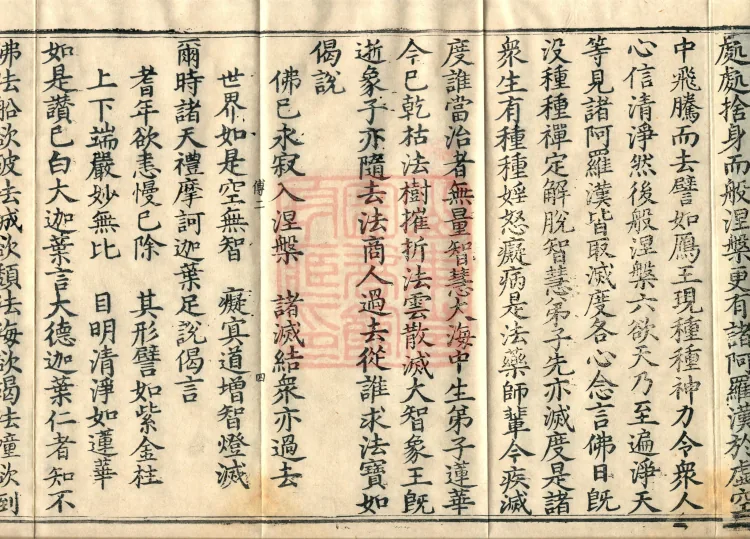 處處捨身而般涅槃更有諸阿羅漢於虛空
中飛騰而去譬如鴈王現種種神力令衆人
心信清淨然後般涅槃六欲天乃至遍淨天
等見諸阿羅漢皆取滅度各心念言佛日旣
没種種禪定解脫智慧弟子先亦滅度是諸
衆生有種種婬怒癡病是法藥師輩今疾滅
度誰當治者無量智慧大海中生弟子蓮華
今已乾枯法樹摧折法雲散滅大智象王旣
逝象子亦隨去法商人過去從誰求法寶如
偈說
佛已永寂入涅槃 諸滅結衆亦過去
世界如是空無智 癡冥道增智燈滅
傳二 四
爾時諸天禮摩訶迦葉足說偈言
耆年欲恚慢已除 其形譬如紫金柱
上下端嚴妙無比 目明清淨如蓮華
如是讃已白大迦葉言大德迦葉仁者知不
佛法船欲破法城欲頹法海欲竭法幢欲到